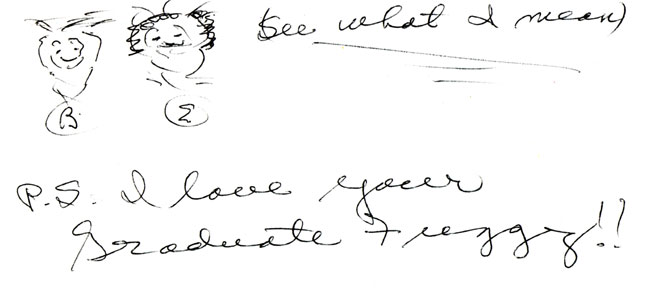 (See what I mean)
B E
P.S. I love your
Graduate Fuzzy!!